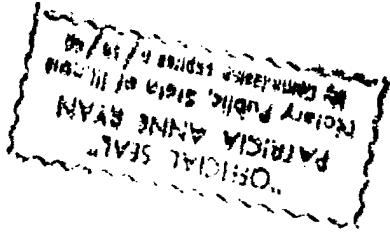 "OFFICIAL SEAL"
PATRICIA ANNE RYAN
Notary Public, State of Illinois
My Commission Expires